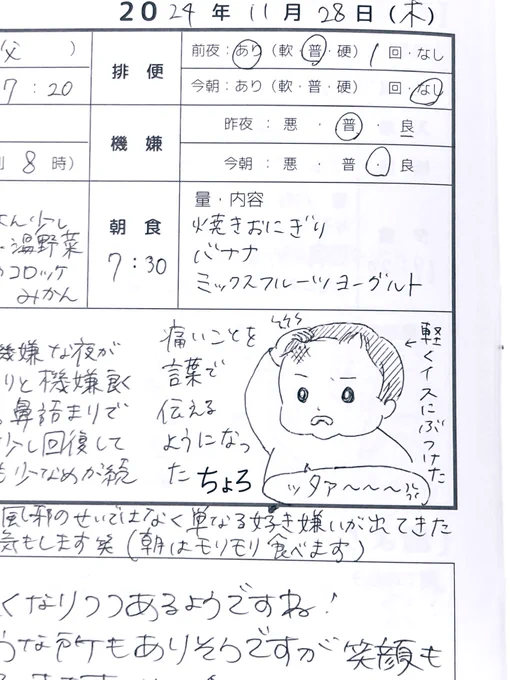 2024年11月28日(木)
父 )
7:20
排便
前夜:あり(軟・普・硬) 1 回・なし
今朝:あり(軟・普・硬) 回・なし
機嫌
昨夜:悪・普・良
今朝:悪・普・
8時)
朝食
7:30
量・内容
焼きおにぎり
バナナ
ミックスフルーツヨーグルト
少し
温野菜
コロッケ
みかん
機嫌な夜が
りと機嫌良く
鼻詰まりで
少し回復して
も少なめが続
痛いことを
言葉で
伝える
ようになっ
た ちょろ
軽くイスにぶつけた
ッタァ〜〜〜
風邪のせいではなく単なる好き嫌いが出てきた
気もします笑(朝はモリモリ食べます)
くなりつつあるようですね!
うな所もありそうですが笑顔も